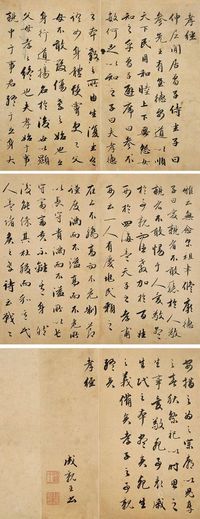 孝經
仲尼閒居曾子侍坐子曰
參先王有至德要道以順
天下民用和睦上下無怨
敏何足以知之子曰夫孝德
之本教之所由生復坐吾
語女身體髮膚受之父
母不敢毀傷孝之始也立
身行道揚名於後世以顯
父母孝之終也夫孝始於事
親中於事君終於立身大
雅云無念爾祖聿修厥德
子曰愛親者不敢惡於人敬
親者不敢慢於人愛敬盡
於事親而德教加於百姓
刑於四海蓋天子之孝
云一人有慶兆民賴之
在上不驕高而不危制節
謹度滿而不溢高而不危所
以長守貴滿而不溢所以長
守富富貴不離其身然後
能保其社稷而和其民
人蓋諸侯之孝詩云戰戰
安措之為之宗廟以鬼享
之春秋祭祀以時思之
生事愛敬死事哀戚
生民之本盡矣死生
之義備矣孝子之事親
終矣
孝經
成親王書